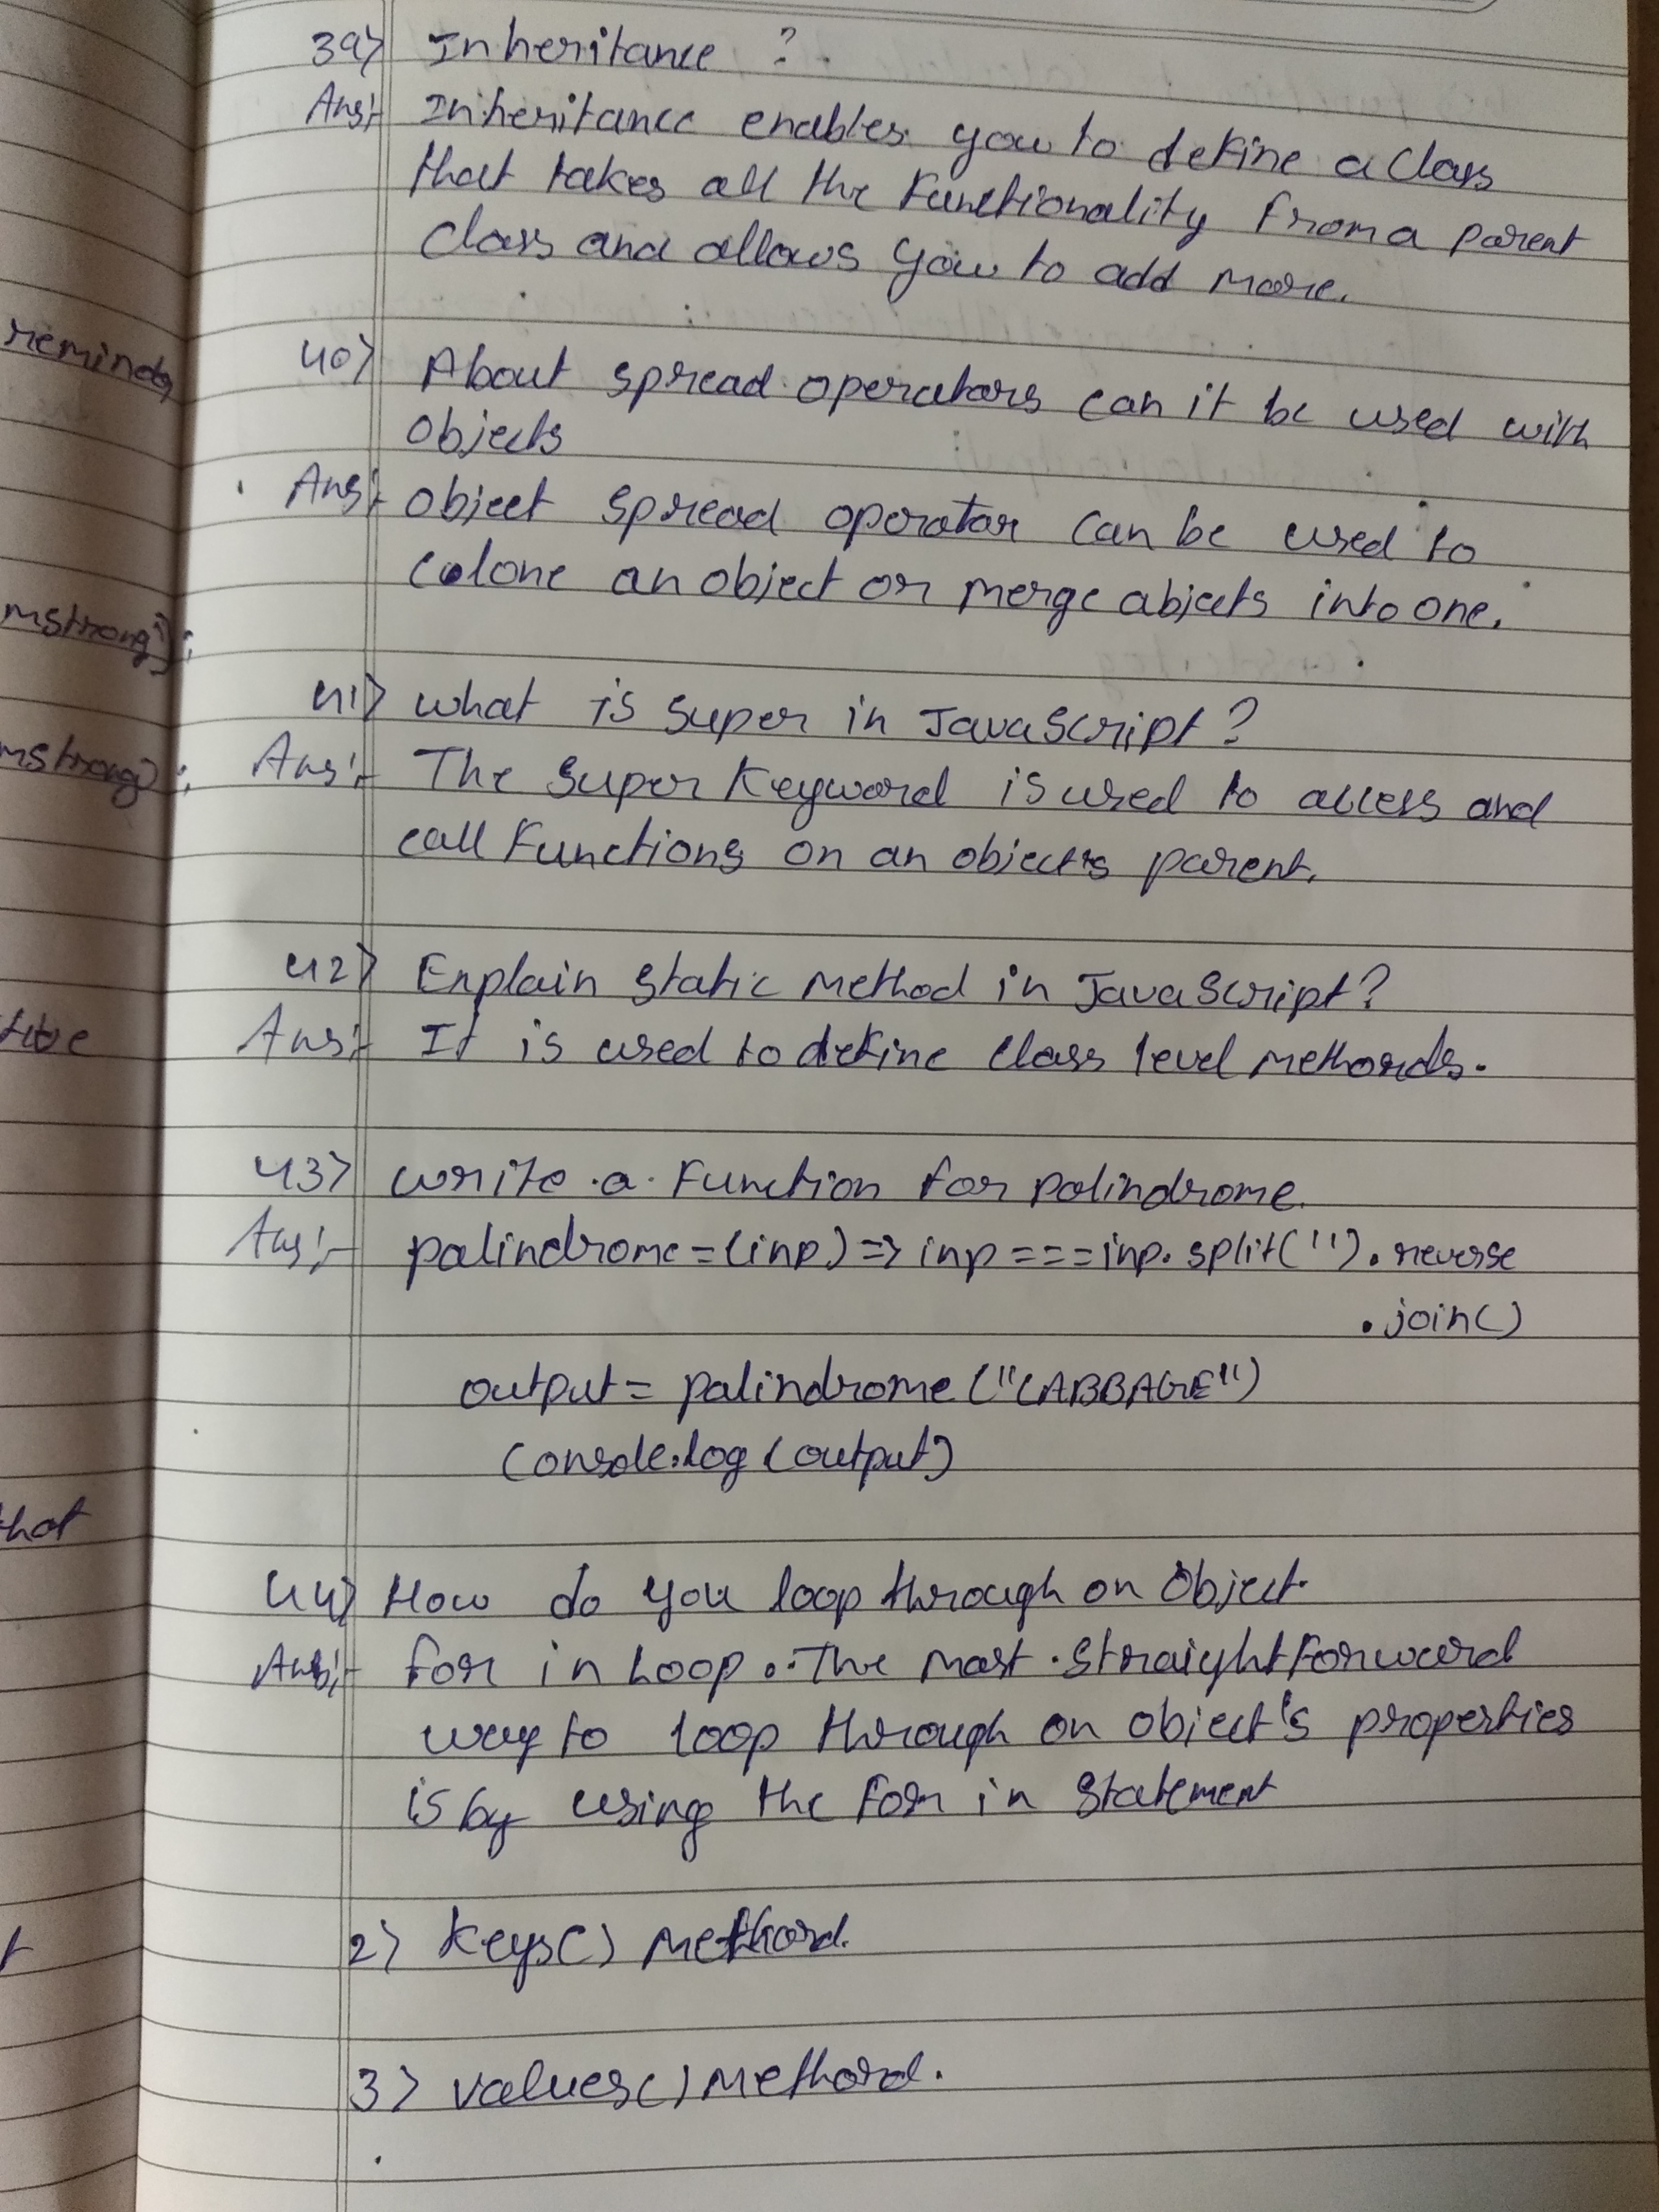 39> Inheritance ?
Ans:- Inheritance enables you to define a class
that takes all the Functionality from a parent
class and allows you to add more.
40> About spread operators can it be used with
objects
Ans:- object spread operator can be used to
colone an object or merge abjects into one.
41> what is super in JavaScript?
Ans:- The super keyword is used to access and
call Functions on an object's parent.
42> Explain static method in JavaScript?
Ans:- It is used to define class level methords.
43> write a Function for palindrome.
Ans:- palindrome=(inp)=> inp===inp.split('').reverse
.join()
output= palindrome("CABBAGE")
Console.log(output)
44> How do you loop through on Object.
Ans:- for in Loop. The most straightforward
way to loop through on object's properties
is by using the for in statement
2> keys() methord.
3> values() methord.
reminds
mstrong');
mstrong');
that